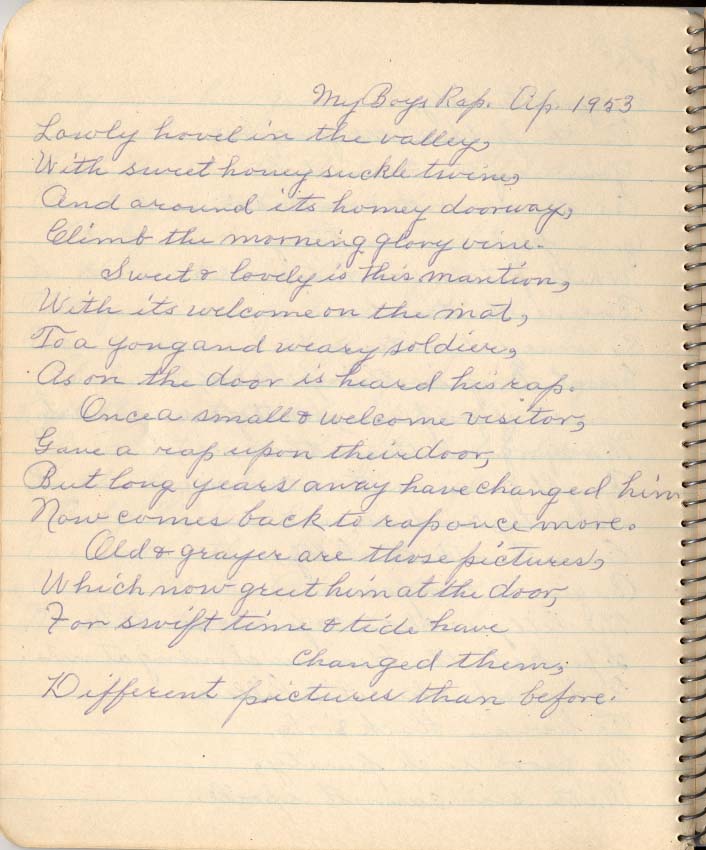 My Boys Rap. Ap. 1953
Lowly hovel in the valley,
With sweet honey suckle twine,
And around its homey doorway,
Climb the morning glory vine.
Sweet & lovely is this mantion,
With its welcome on the mat,
To a yong and weary soldier,
As on the door is heard his rap.
Once a small & welcome visitor,
Gave a rap upon their door,
But long years away have changed him
Now comes back to rap once more.
Old & grayer are those pictures,
Which now greet him at the door,
For swift time & tide have
changed them,
Different pictures than before.